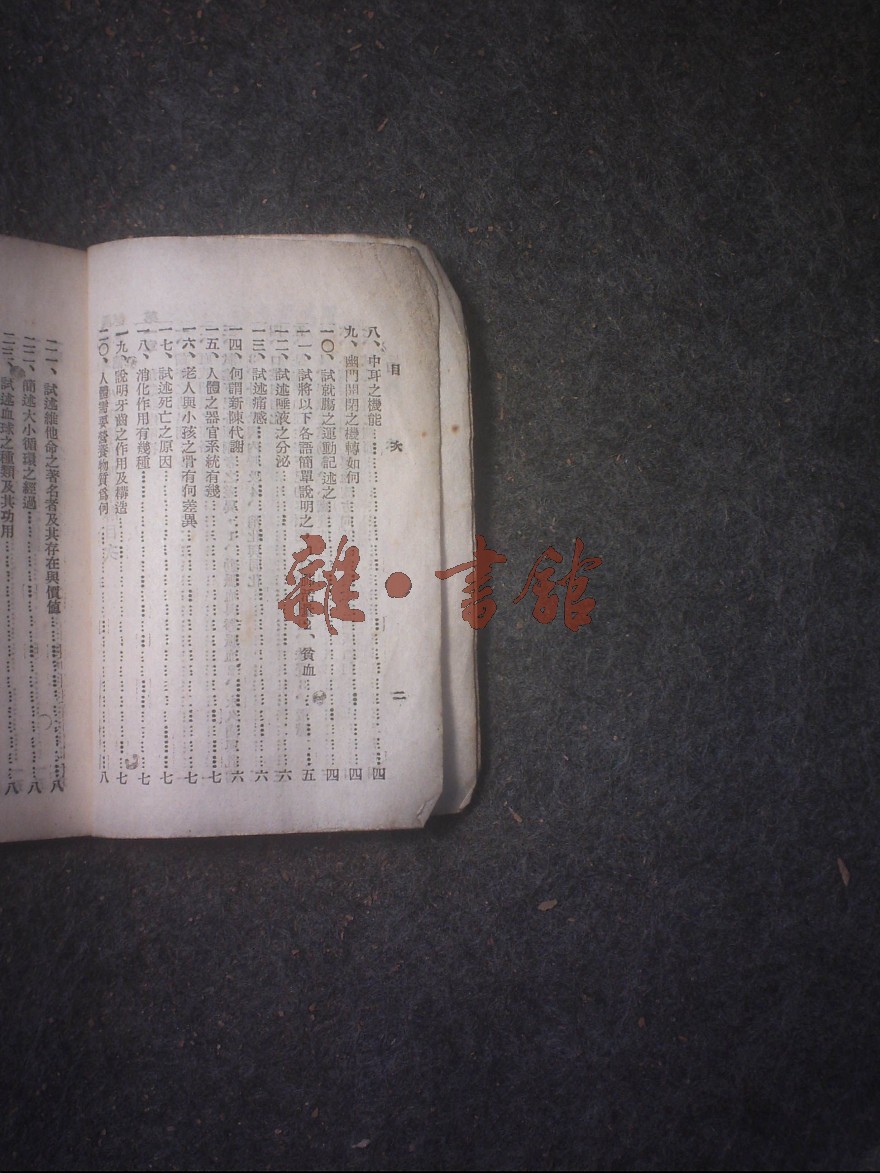 目次 二
八、中耳之機能………四
九、幽門開閉之機轉如何………四
一〇、試就腸之運動記述之………四
一一、試將以下各語簡單說明之 、貧血………五
一二、試述唾液之分泌………六
一三、試述痛感………六
一四、何謂新陳代謝………六
一五、人體之器官系統有幾………七
一六、老人與小孩之骨有何差異………七
一七、試述死亡之原因………七
一八、消化作用有幾種………七
一九、說明牙齒之作用及構造………七
二〇、人體需要營養物質爲何………八
二一、試述維他命之著名者及其存在與價値………八
二二、簡述大小循環之經過………八
二三、試述血球之種類及其功用………八
雜·書館